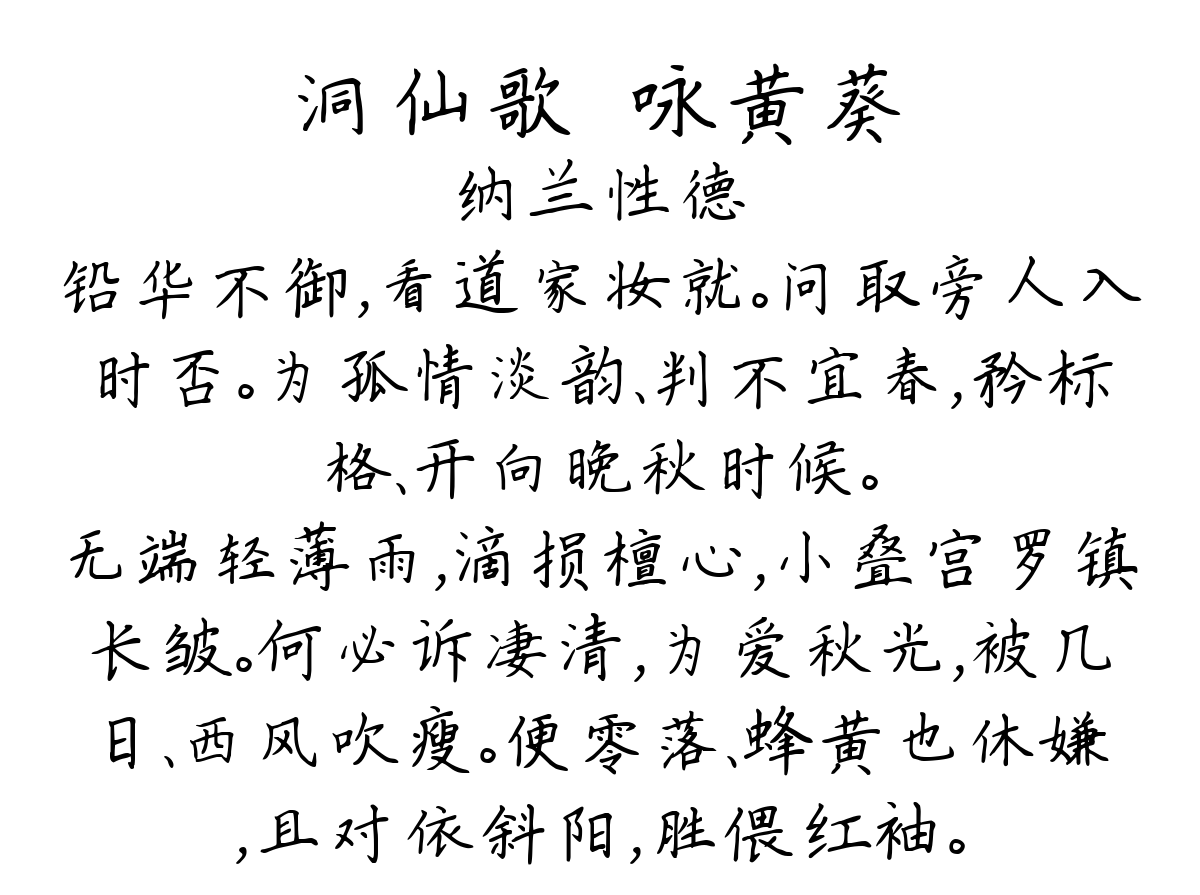 洞仙歌 咏黄葵
纳兰性德
铅华不御,看道家妆就。问取旁人入
时否。为孤情淡韵、判不宜春,矜标
格、开向晚秋时候。
无端轻薄雨,滴损檀心,小叠宫罗镇
长皱。何必诉凄清,为爱秋光,被几
日、西风吹瘦。便零落、蜂黄也休嫌
,且对依斜阳,胜偎红袖。